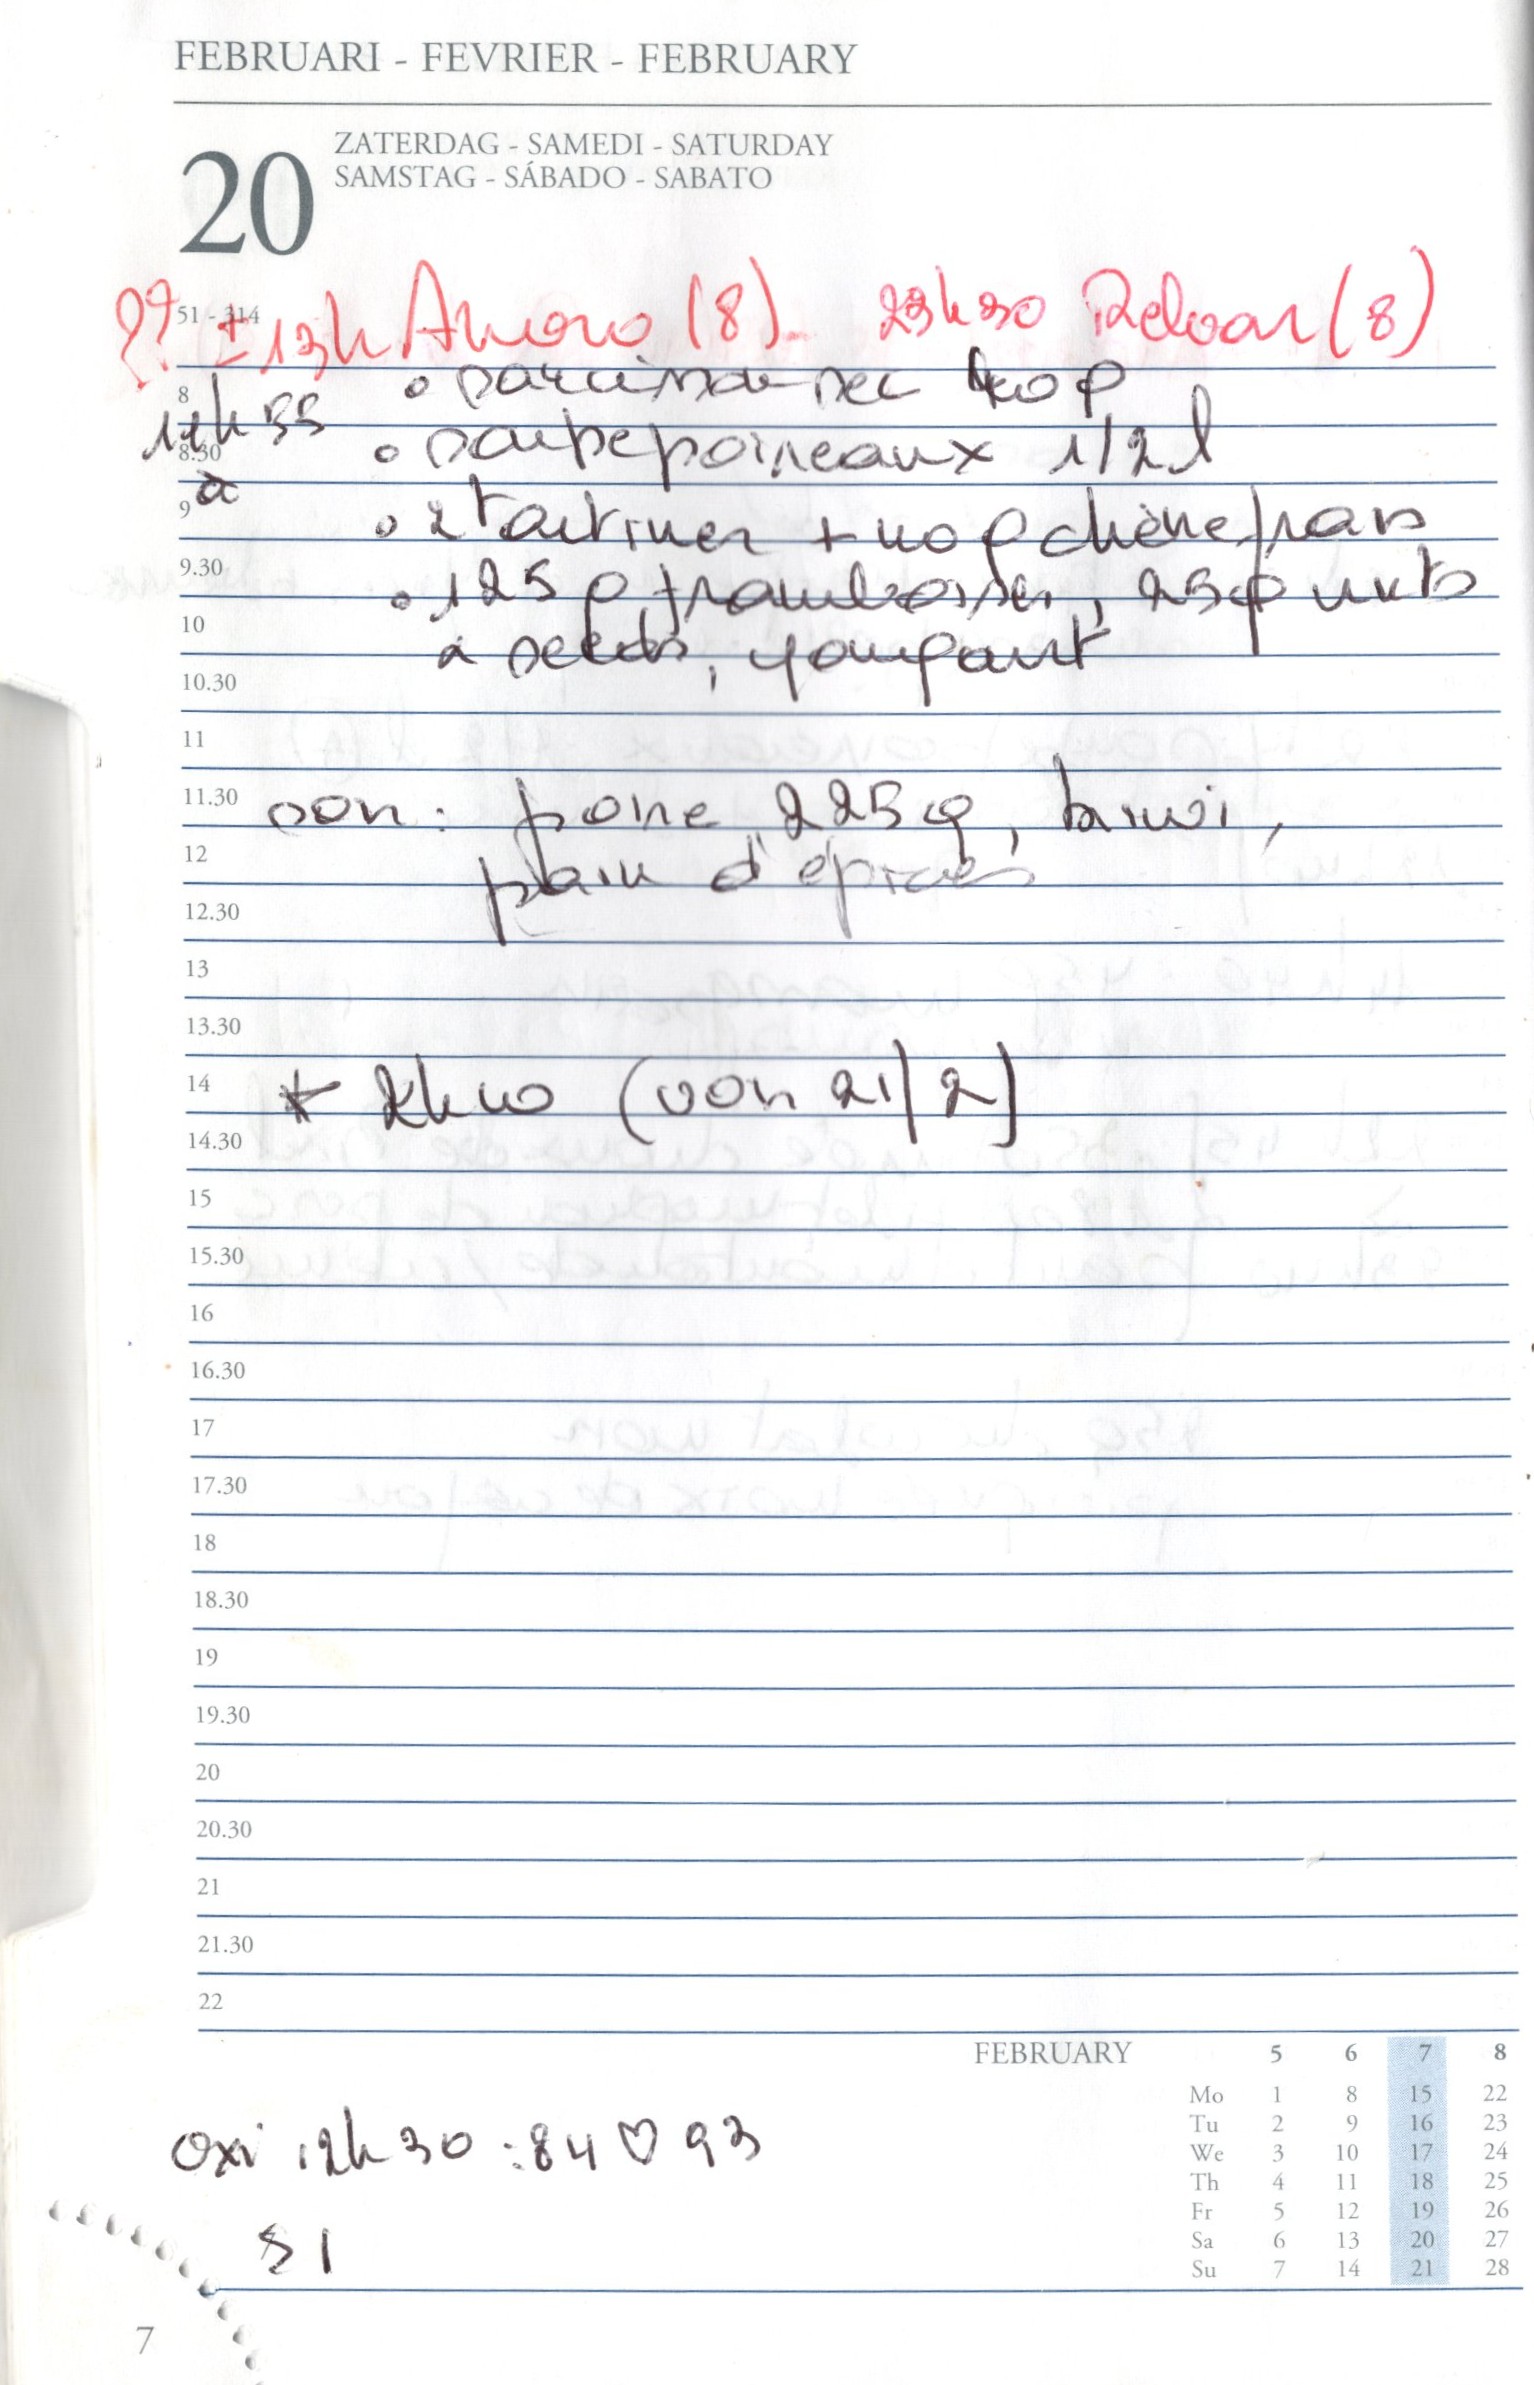 FEBRUARI - FEVRIER - FEBRUARY
20
ZATERDAG - SAMEDI - SATURDAY
SAMSTAG - SÁBADO - SABATO
51 - 314
?? ± 13h (8) - 23h30 (8)
8
• sec 40g
8.30
• soupe poireaux 1/2 l
à
9
• 2 tartines + 40g chèvre frais
9.30
• 125g framboises, 25g nuts
10
& seeds, yougourt
10.30
11
11.30
soir: poire 225g, kiwi,
12
pain d'épices
12.30
13
13.30
14
* 2h40 (voir 21/2)
14.30
15
15.30
16
16.30
17
17.30
18
18.30
19
19.30
20
20.30
21
21.30
22
FEBRUARY 5 6 7 8
Mo 1 8 15 22
Tu 2 9 16 23
We 3 10 17 24
Th 4 11 18 25
Fr 5 12 19 26
Sa 6 13 20 27
Su 7 14 21 28
Oxi 12h30 : 84 ♡ 93
7